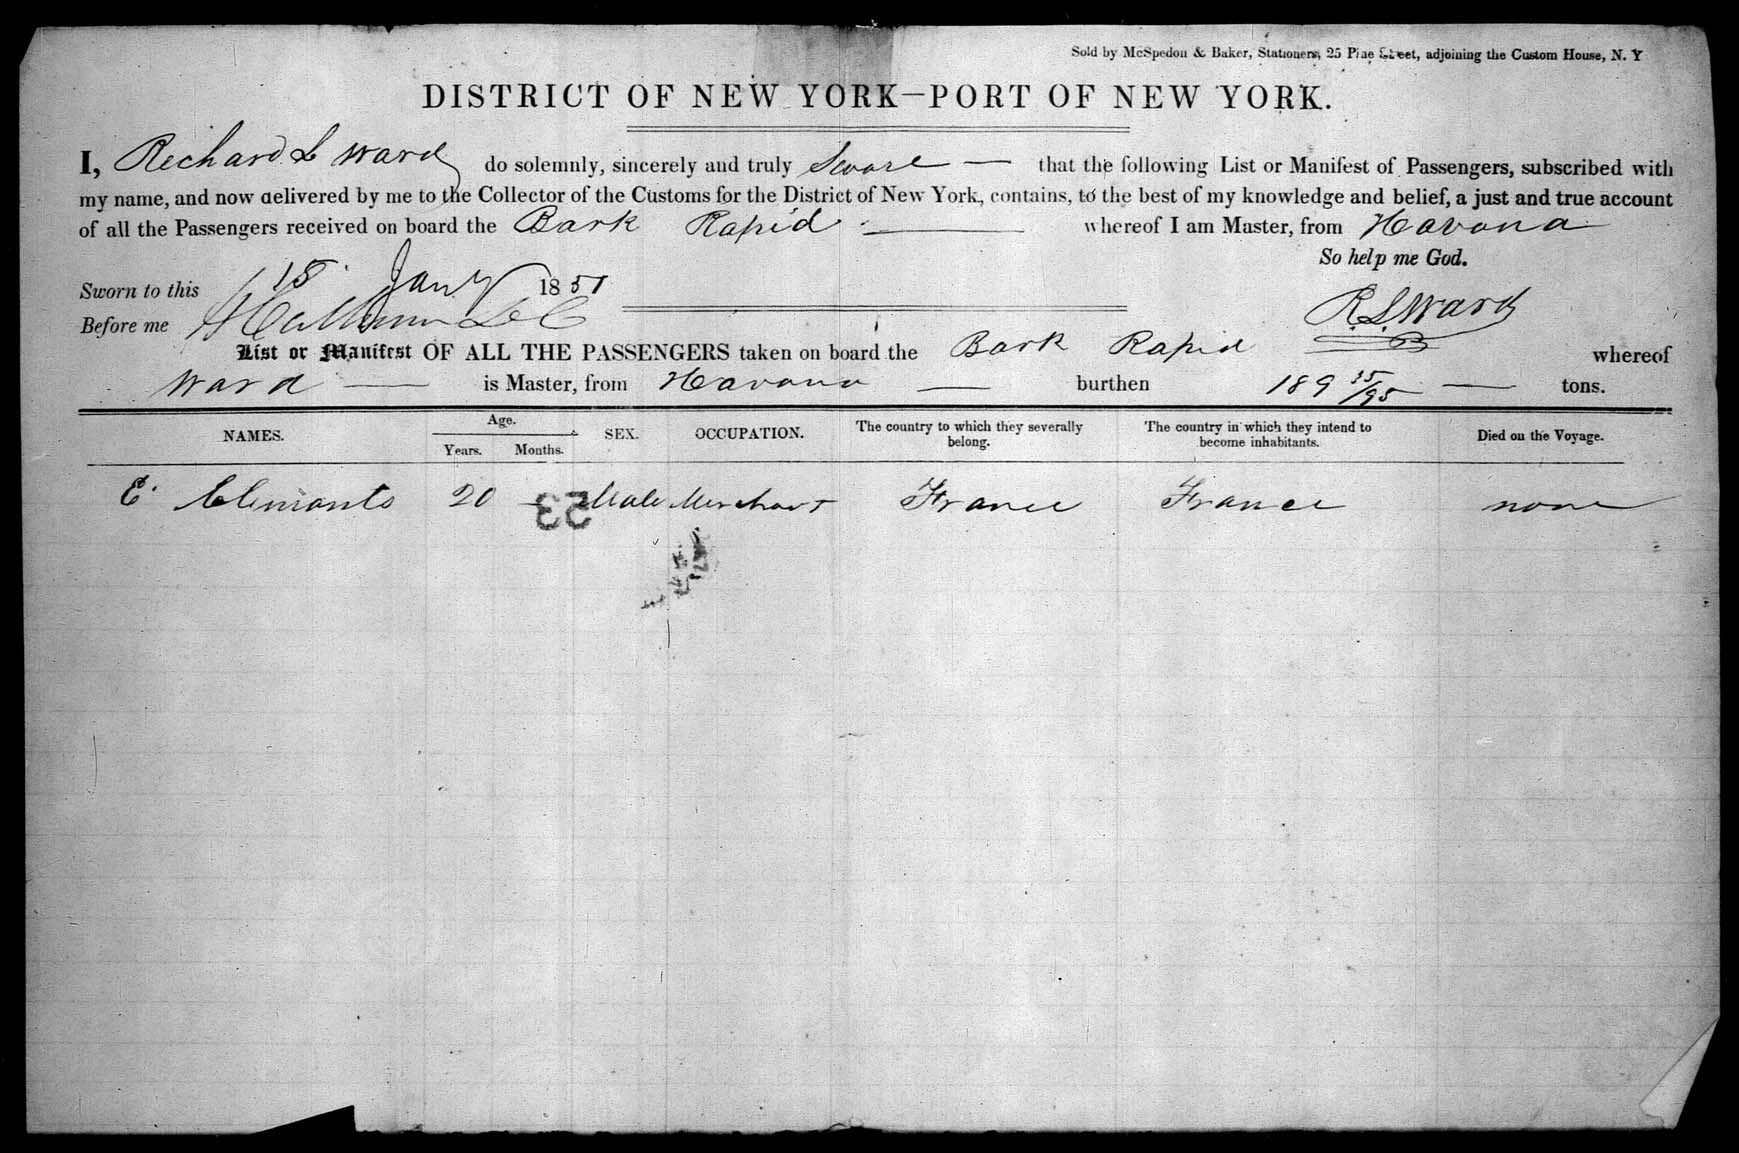 Sold by McSpedon & Baker, Stationers, 25 Pine Street, adjoining the Custom House, N. Y
DISTRICT OF NEW YORK—PORT OF NEW YORK.
I, Richard L Ward do solemnly, sincerely and truly Swear — that the following List or Manifest of Passengers, subscribed with
my name, and now delivered by me to the Collector of the Customs for the District of New York, contains, to the best of my knowledge and belief, a just and true account
of all the Passengers received on board the Bark Rapid — whereof I am Master, from Havana
So help me God.
Sworn to this 15 Jany 1851
Before me
R. L. Ward
List or Manifest OF ALL THE PASSENGERS taken on board the Bark Rapid whereof
Ward — is Master, from Havana — burthen 189 35/95 — tons.
NAMES. Age. Years. Months. SEX. OCCUPATION. The country to which they severally belong. The country in which they intend to become inhabitants. Died on the Voyage.
E. Clemants 20 — Male Merchant France France none
23